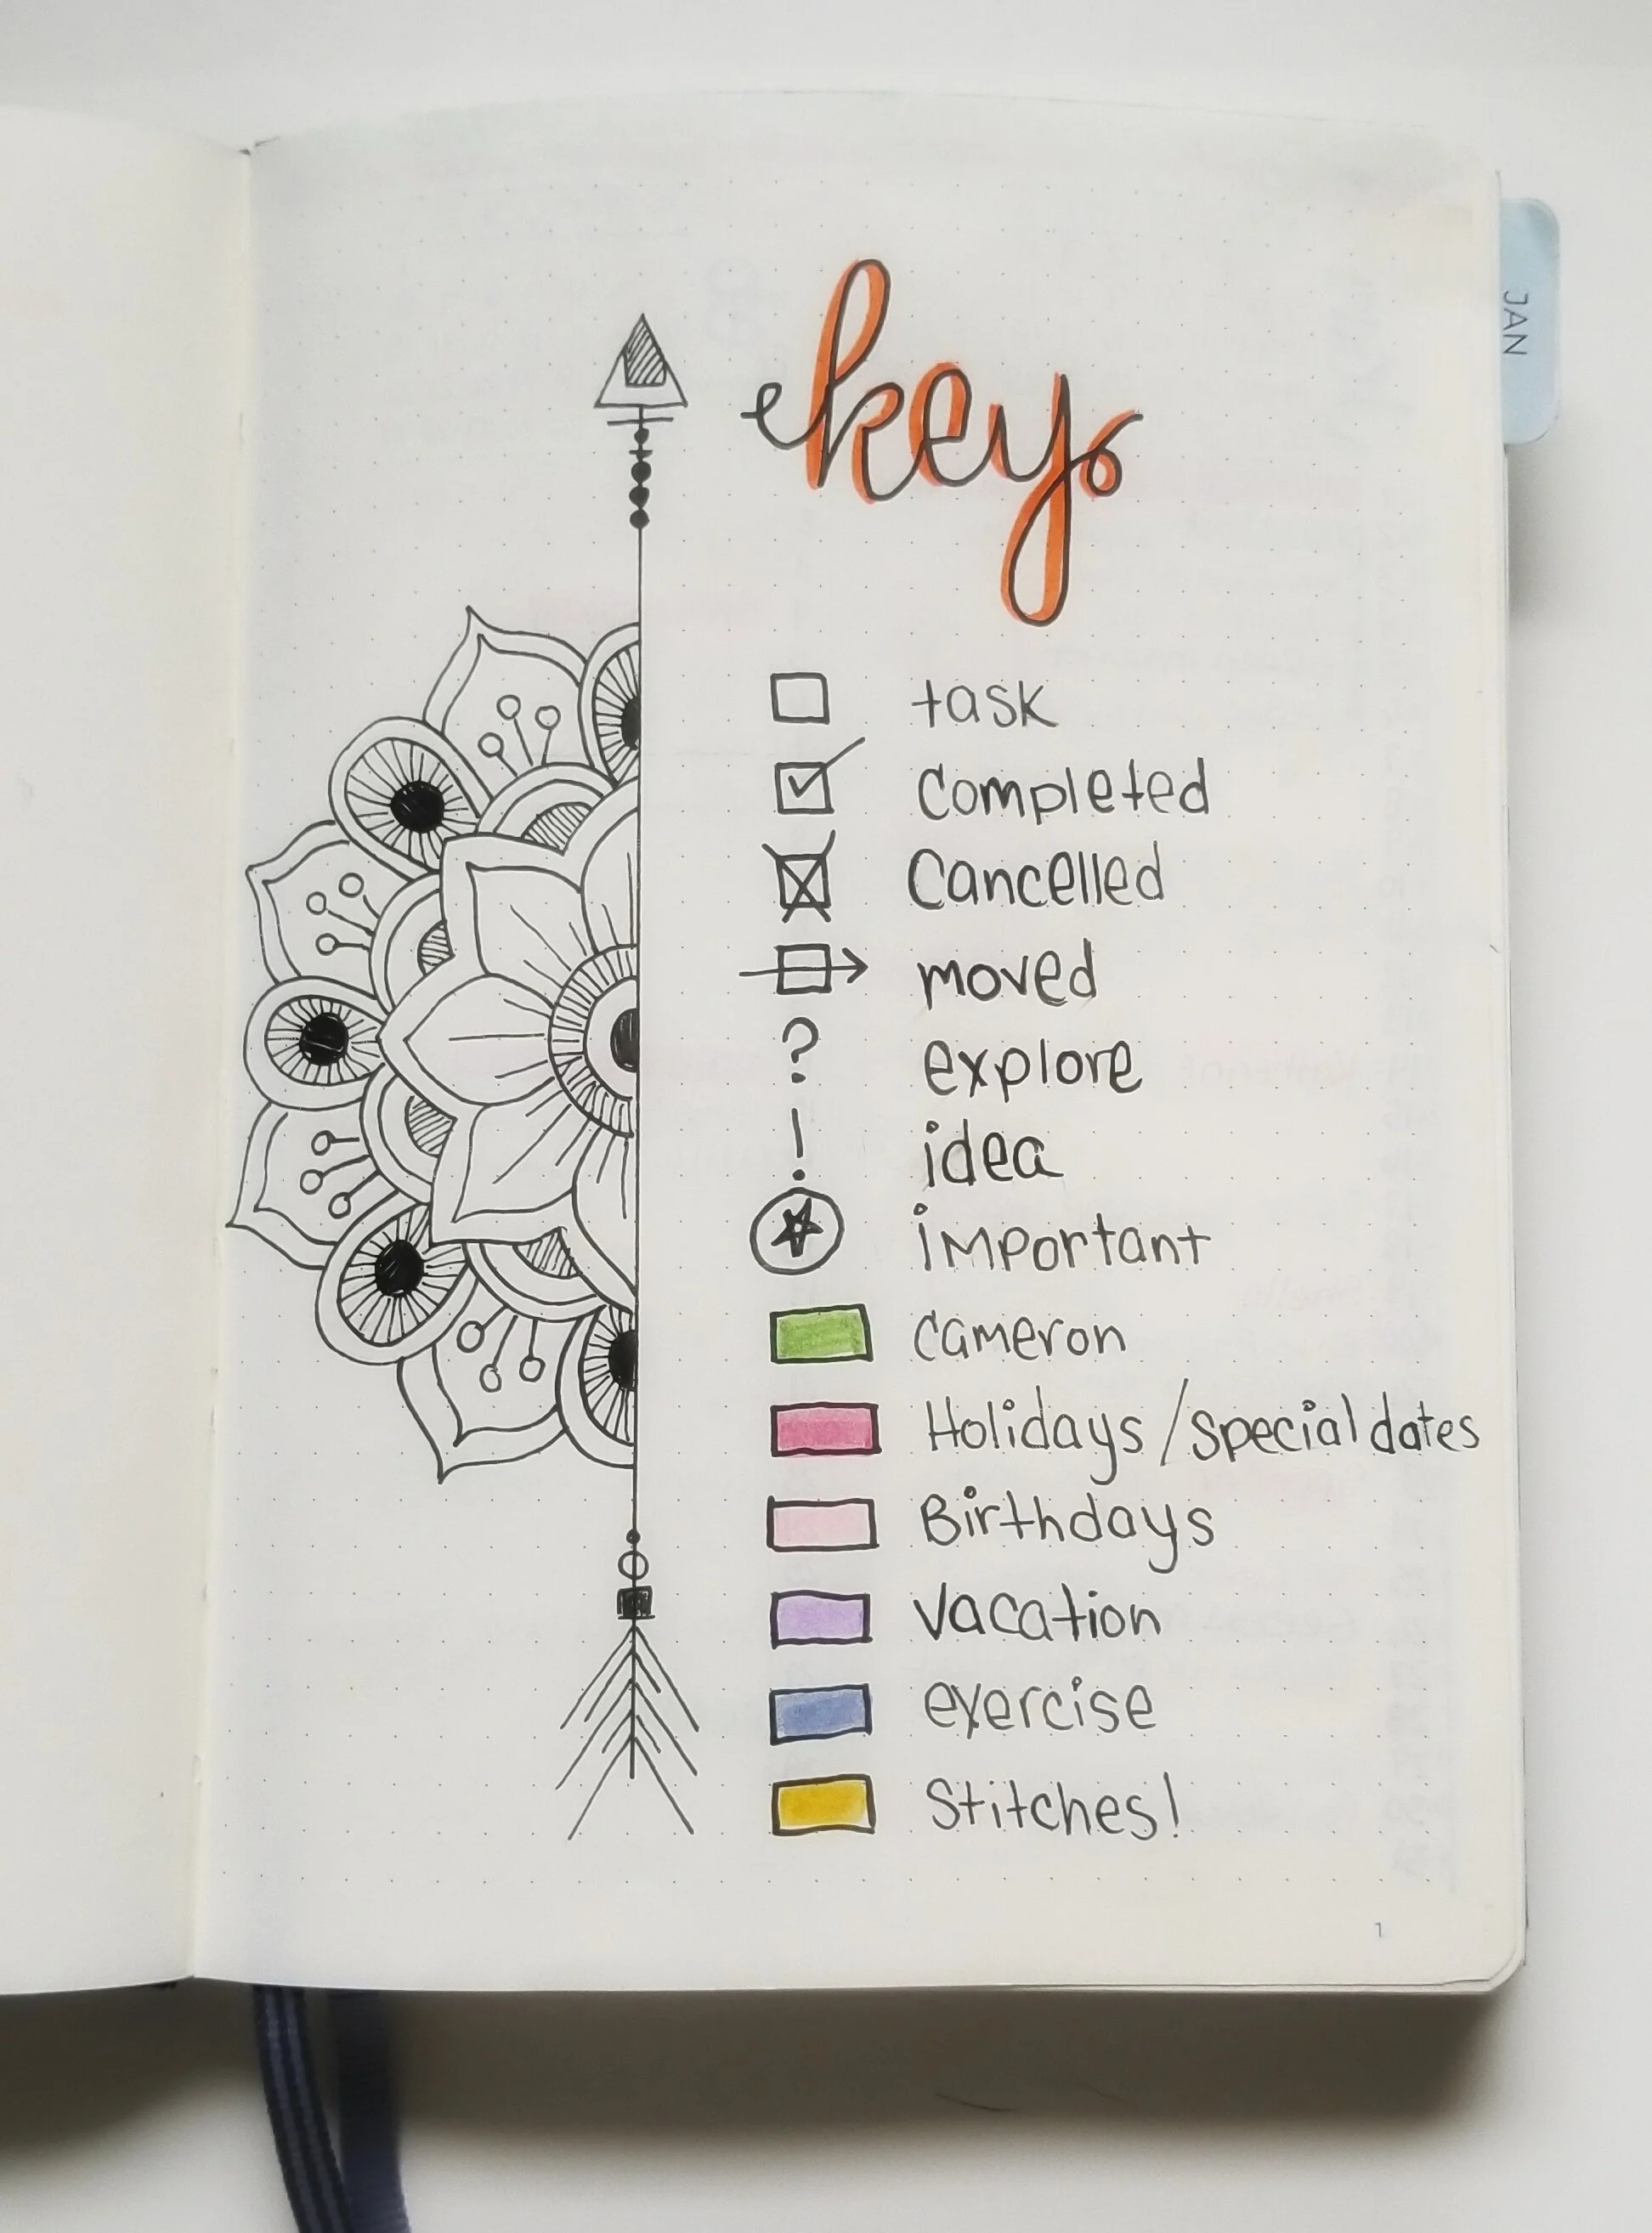 key
JAN
task
completed
Cancelled
moved
? explore
! idea
important
cameron
Holidays/special dates
Birthdays
Vacation
exercise
Stitches!
1